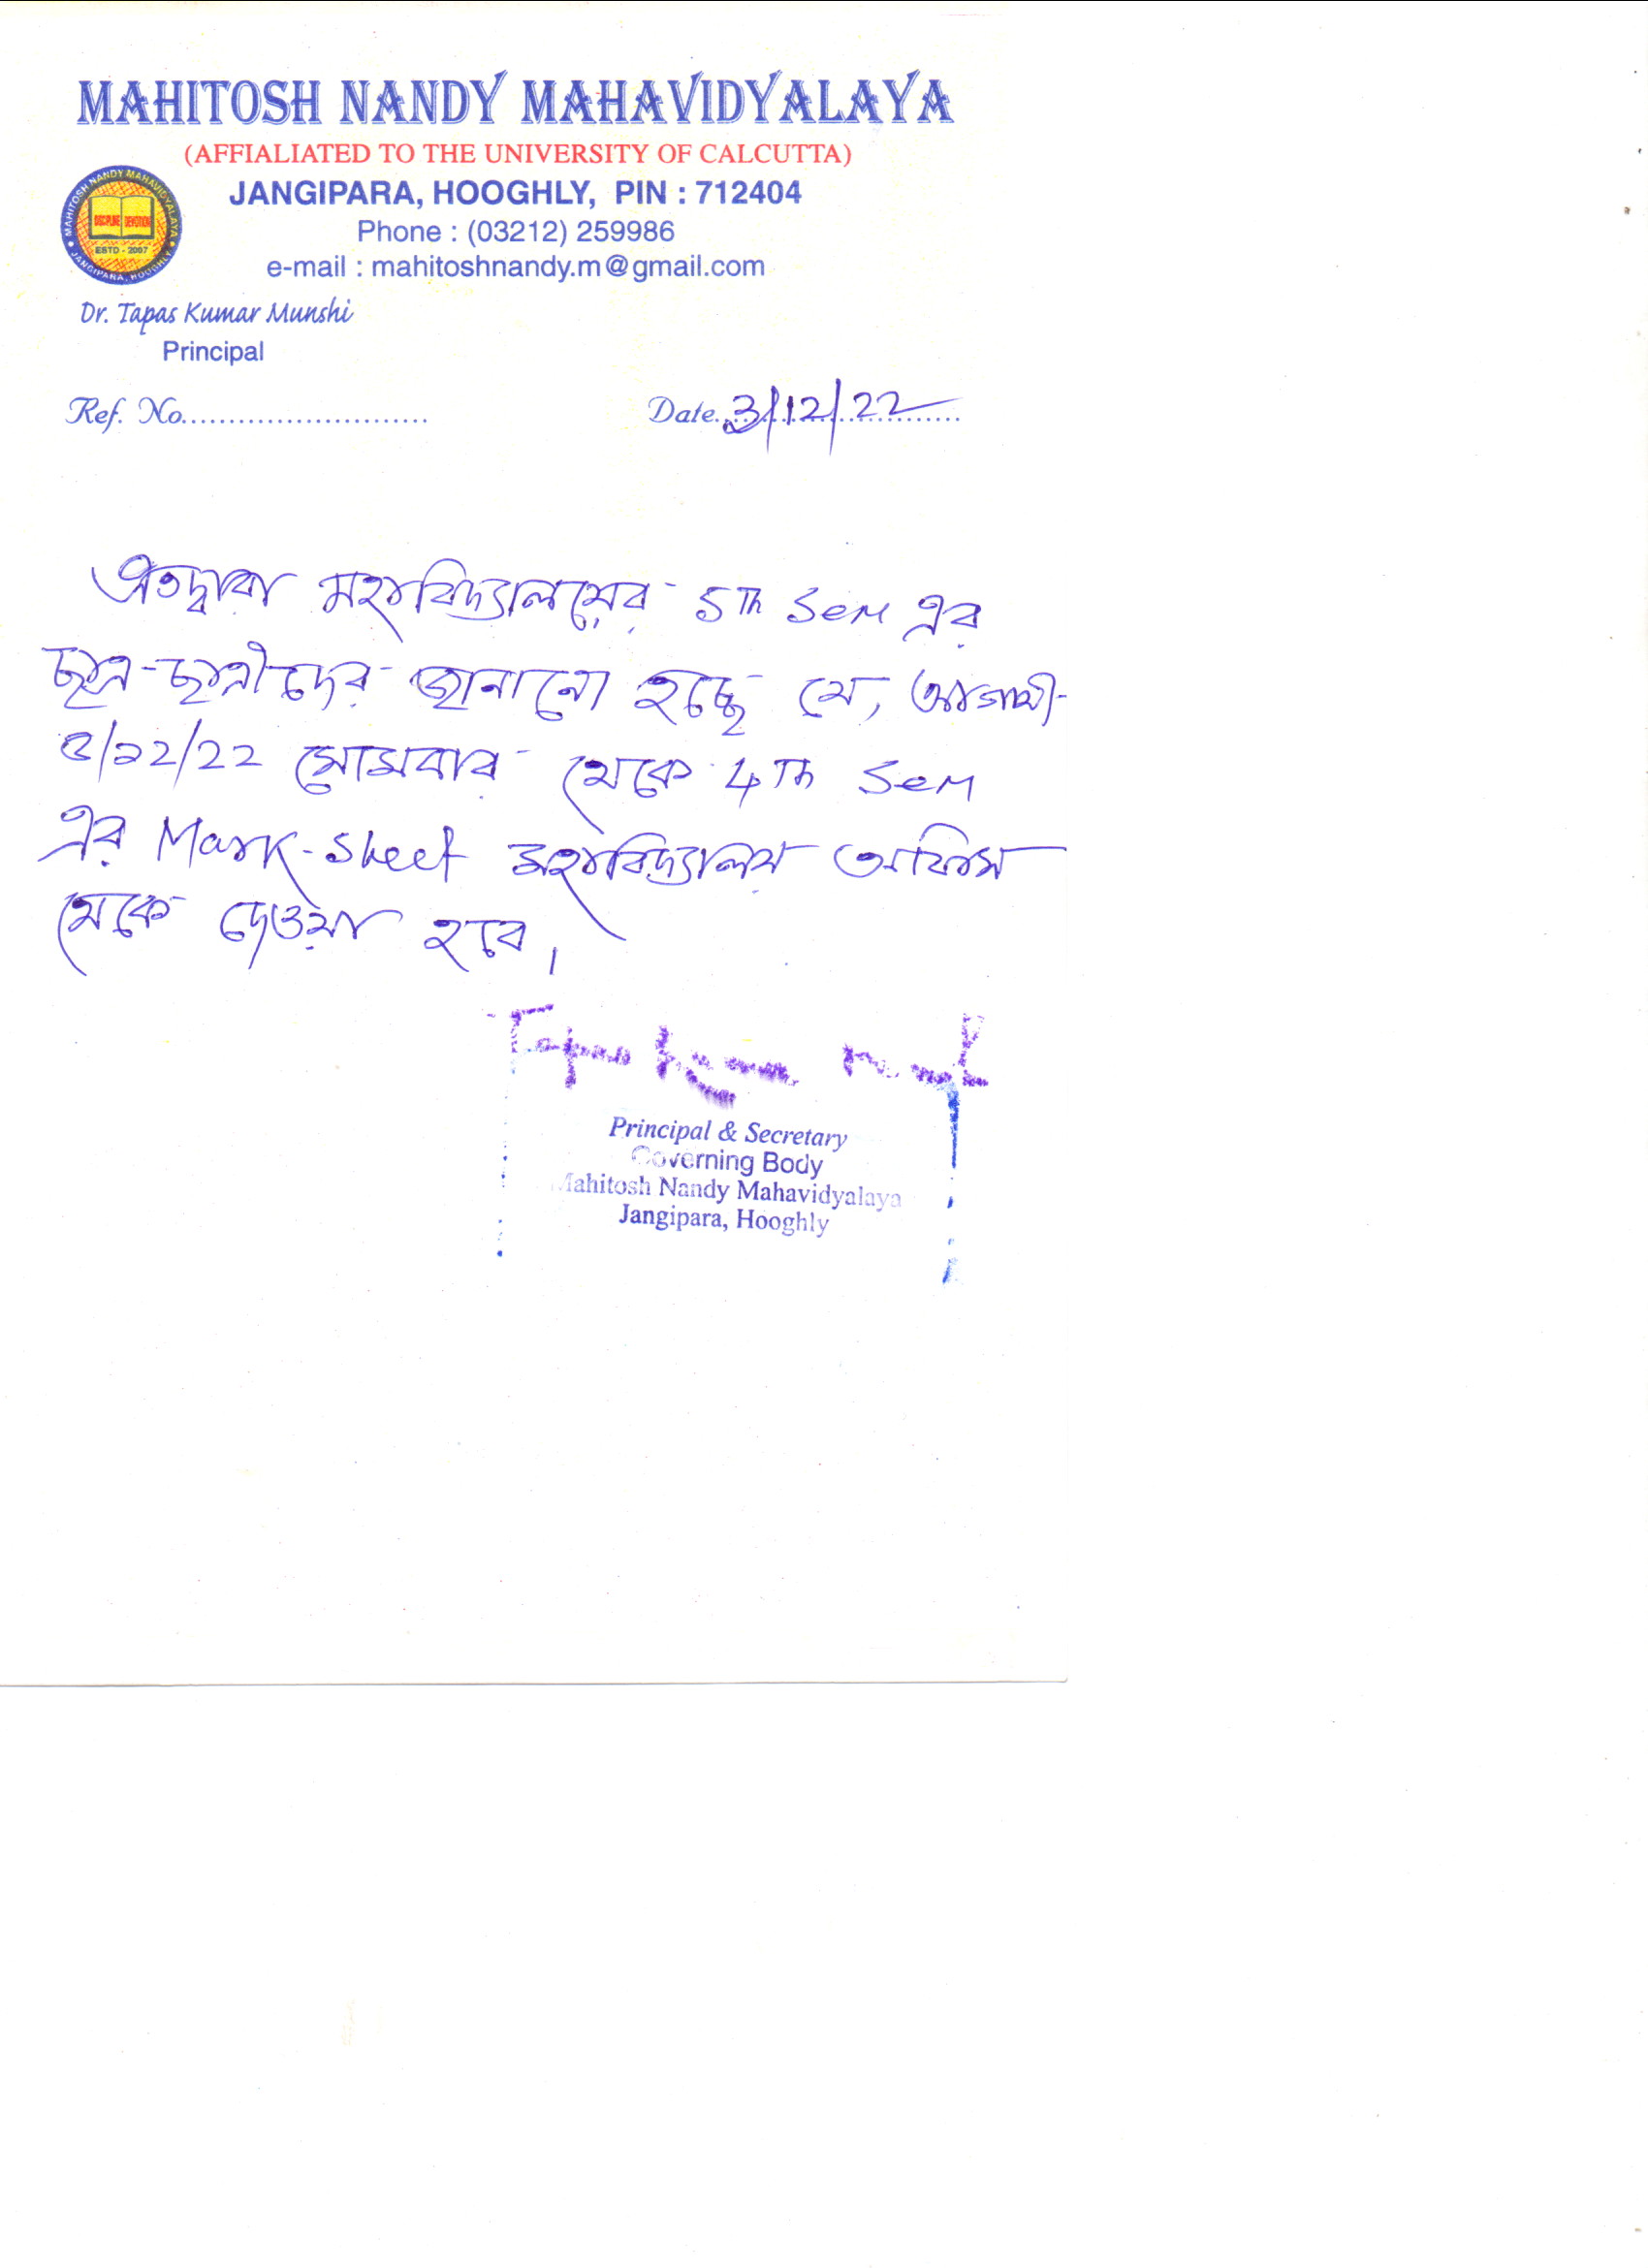 MAHITOSH NANDY MAHAVIDYALAYA
(AFFIALIATED TO THE UNIVERSITY OF CALCUTTA)
JANGIPARA, HOOGHLY, PIN : 712404
Phone : (03212) 259986
e-mail : mahitoshnandy.m@gmail.com
MAHITOSH NANDY MAHAVIDYALAYA
DISCIPLINE DEVOTION
ESTD - 2007
JANGIPARA, HOOGHLY
Dr. Tapas Kumar Munshi
Principal
Ref. No.......................... Date 3/12/22
এতদ্বারা মহাবিদ্যালয়ের 5Th Sem এর
ছাত্র-ছাত্রীদের জানানো হচ্ছে যে, আগামী
৫/১২/22 সোমবার থেকে 4Th Sem
এর Mark-Sheet মহাবিদ্যালয় অফিস
থেকে দেওয়া হবে।
Tapas Kumar Munshi
Principal & Secretary
Governing Body
Mahitosh Nandy Mahavidyalaya
Jangipara, Hooghly